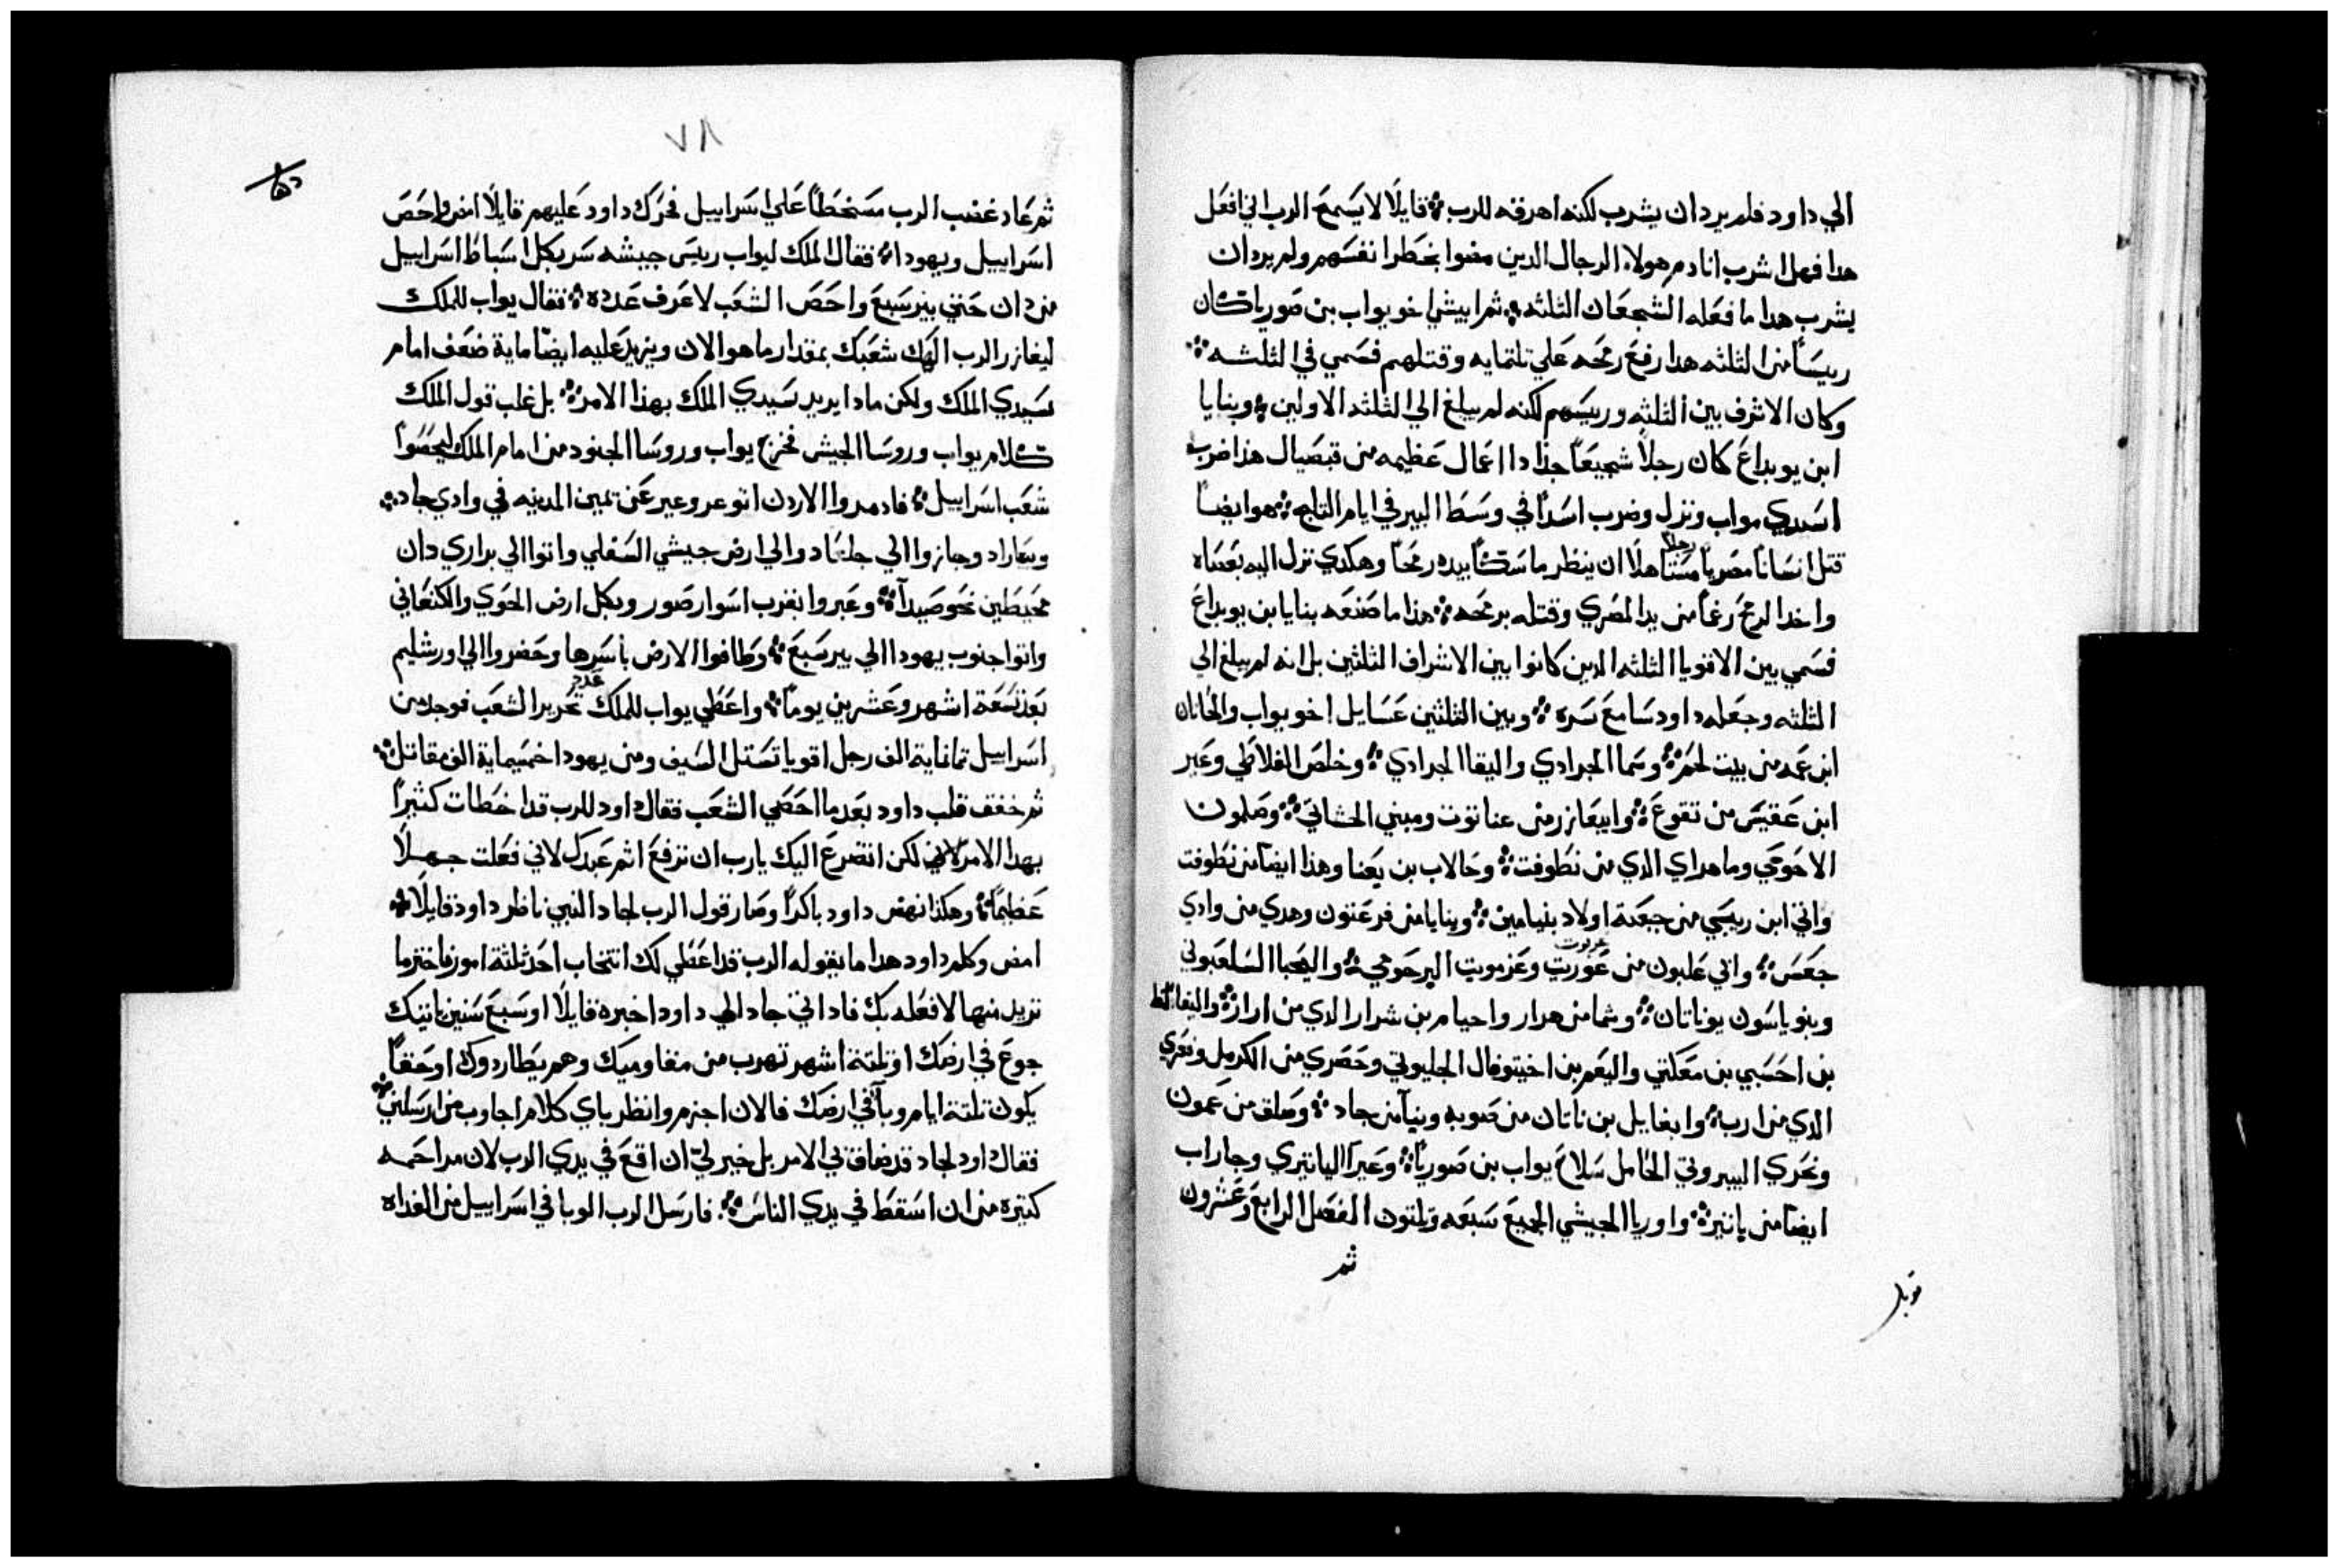 الي داود فلم يرد ان يشرب لكنه اهرقه للرب قايلًا لا يسمح الرب اني افعل
هدا فهل اشرب انا دم هولاء الرجال الدين مضوا بخطر انفسهم ولم يرد ان
يشرب هدا ما فعله الشجعان الثلثه ثم ابيشي اخو يواب بن صوريا كان
ريسًا من الثلثه هدا رفع رمحه علي تلتمايه وقتلهم فسمي في الثلثه
وكان الاشرف بين الثلثه وريسهم لكنه لم يبلغ الي الثلثه الاولين وبنايا
ابن يويداع كان رجلًا شجيعًا جدًا دا اعمال عظيمه من قبصيال هذا ضرب
اسدي مواب ونزل وضرب اسدًا في وسط البير في ايام الثلج هو ايضًا
قتل انسانًا مصريًا رجلًا مستاهلًا ان ينظر ماسكًا بيده رمحًا وهكدي نزل اليه بعصاه
واخد الرمح رغمًا من يد المصري وقتله برمحه هذا ما صنعه بنايا بن يويداع
فسمي بين الاقويا الثلثه الدين كانوا بين الاشراف الثلثين بل انه لم يبلغ الي
الثلثه وجعله داود سامع سره وبين الثلثين عسايل اخو يواب والحانان
ابن عمه من بيت لحم وسما الجرادي واليقا الجرادي وخلص الفلاطي وعير
ابن عقيس من تقوع وابيعازر من عناتوت ومبني الحشاتي وصلمون
الاحوحي وماهراي الدي من نطوفت وحالاب بن يعنا وهذا ايضًا من نطوفت
واتي ابن ريبي من جبعة اولاد بنيامين وبنايا من فرعتون وهدي من وادي
جعس وابي علبون من عوربت عربوت وعزمويت البرحومي واليحبا السلعبوني
وبنو ياسون يوناتان وشما من هرار واحيام بن شرار الدي من ارار واليفالط
بن احسبي بن معكتي واليعم بن اخيتوفال الجليوتي وحصري من الكرمل وفعري
الدي من ارب وايغايل بن ناتان من صوبه وبنيا من جاد وصلق من عمون
ونحري البيروتي الحامل سلاح يواب بن صوريا وعيرا اليانتري وجاراب
ايضًا من يانتير واوريا الحيثي الجميع سبعه وثلتون الفصل الرابع وعشرون
ثم
قوبل
٧٨
ثم عاد غضب الرب مسخطًا علي اسراييل فحرك داود عليهم قايلًا امض واحص
اسراييل ويهودا فقال الملك ليواب ريس جيشه سر بكل اسباط اسراييل
من دان حتي بيرسبع واحص الشعب لاعرف عدده فقال يواب للملك
ليغازر الرب الهك شعبك بمقدار ما هو الان ويزيد عليه ايضًا ماية ضعف امام
سيدي الملك ولكن مادا يريد سيدي الملك بهذا الامر بل غلب قول الملك
كلام يواب وروسا الجيش فخرج يواب وروسا الجنود من امام الملك ليحصوا
شعب اسراييل فاد مروا الاردن اتو عروعير عن يمين المدينه في وادي جاد
وبيعازاد وجازوا الي جلعاد والي ارض حيشي السفلي واتوا الي براري دان
محيطين نحو صيدا وعبروا بقرب اسوار صور وبكل ارض الحوي والكنعاني
واتوا جنوب يهودا الي بيرسبع وطافوا الارض باسرها وحضروا الي اورشليم
بعد تسعة اشهر وعشرين يومًا واعطي يواب للملك عدد تحرير الشعب فوجد من
اسراييل تمانماية الف رجل اقويا تستل السيف ومن يهودا خمسماية الف مقاتل
ثم خفق قلب داود بعد ما احصي الشعب فقال داود للرب قد اخطات كثيرًا
بهدا الامر لكن اتضرع اليك يارب ان ترفع اثم عبدك لاني فعلت جهلًا
عظيمًا وهكذا نهض داود باكرًا وصار قول الرب لجاد النبي ناظر داود قايلًا
امض وكلم داود هدا ما يقوله الرب قد اعطي لك انتخاب احد ثلثة امور فاختر ما
تريد منها لافعله بك فاد اتي جاد الي داود اخبره قايلًا او سبع سنين ياتيك
جوع في ارضك او ثلثة اشهر تهرب من مقاوميك وهم يطاردوك او حقًا
يكون تلتة ايام وبا في ارضك فالان اجزم وانظر باي كلام اجاوب من ارسلني
فقال داود لجاد قد ضاق بي الامر بل خير لي ان اقع في يدي الرب لان مراحمه
كتيره من ان اسقط في يدي الناس فارسل الرب الوبا في اسراييل من الغداه